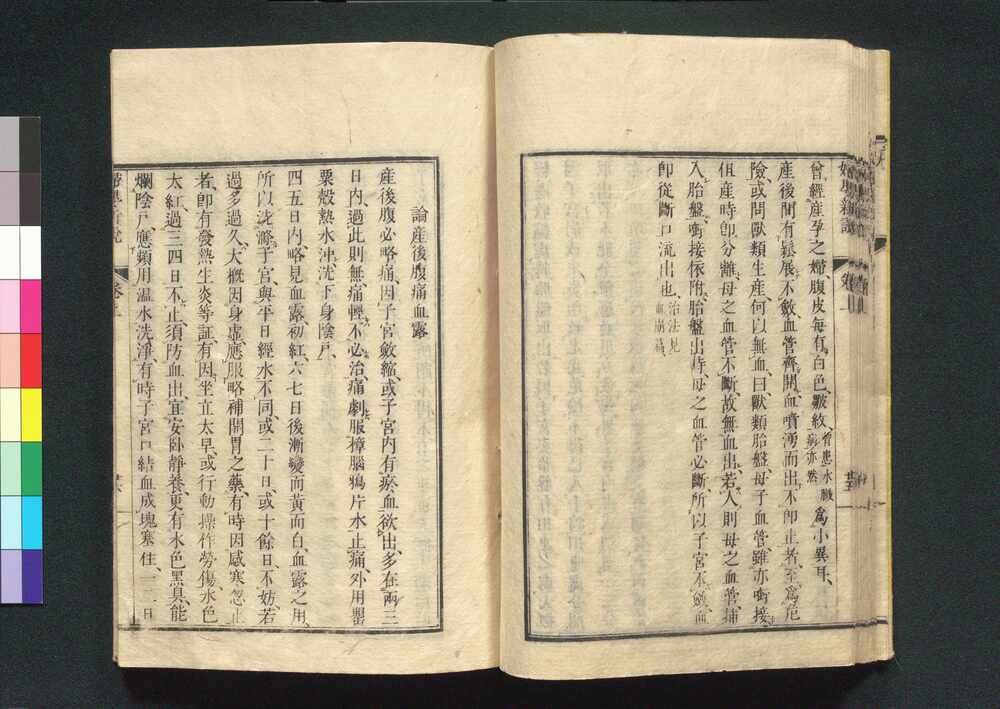 曾經產孕之婦腹皮每有白色皺紋、曾患水臌病亦然為小異耳、
產後間有鬆展不斂血管齊開血噴湧而出不即止者至為危
險或問獸類生產何以無血曰獸類胎盤母子血管雖亦啣接
但產時即分離母之血管不斷故無血出若人則母之血管插
入胎盤啣接依附胎盤出時母之血管必斷所以子宮不斂血
即從斷口流出也治法見血崩篇
論產後腹痛血露
產後腹必略痛因子宮斂縮或子宮內有瘀血欲出多在兩三
日內過此則無痛輕不必治痛劇服樟腦鴉片水止痛外用罌
粟殼熱水沖洗下身陰戶
四五日內略見血露初紅六七日後漸變而黃而白血露之用
所以洗滌子宮與平日經水不同或二十日或十餘日不妨若
過多過久大概因身虛應服略補開胃之藥有時因感寒忽止
者即有發熱生炎等証有因坐立太早或行動操作勞傷水色
太紅過三四日不止須防血出宜安臥靜養更有水色黑臭能
爛陰戶應頻用溫水洗淨有時子宮口結血成塊塞住一二日